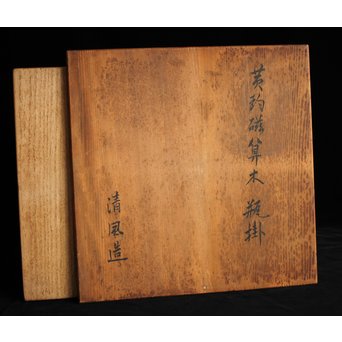 黄釉磁算木瓶掛
清風造